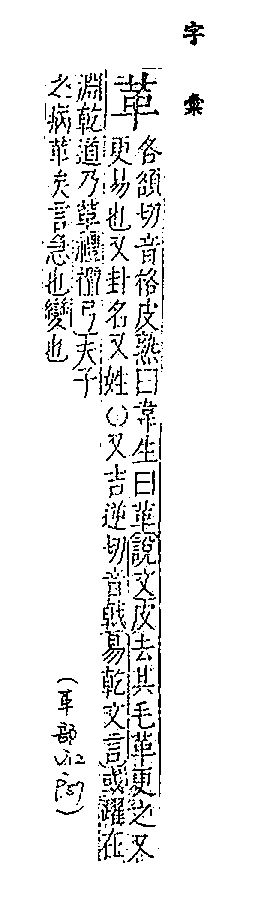 字彙
革
各額切音格皮熟曰韋生曰革說文皮去其毛革更之又
更易也又卦名又姓○又吉逆切音戟易乾文言或躍在
淵乾道乃革禮檀弓夫子
之病革矣言急也變也
(革部 V.12 P.57)